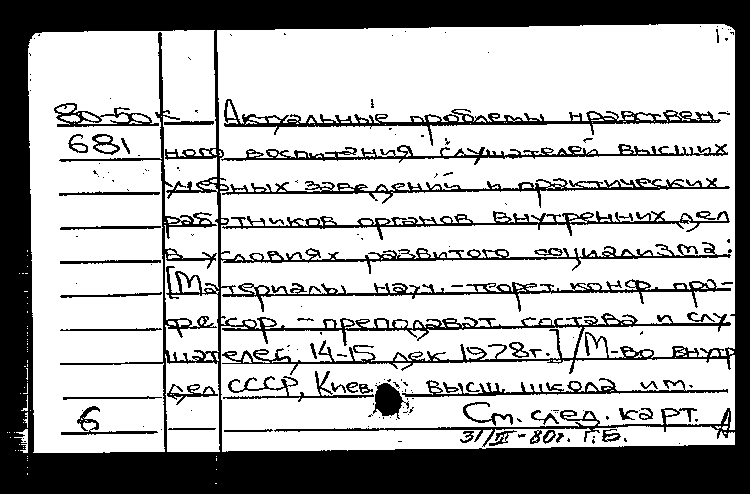 1.
80-50к Актуальные проблемы нравствен-
681 ного воспитания слушателей высших
учебных заведений и практических
работников органов внутренних дел
в условиях развитого социализма:
[Материалы науч.-теорет. конф. про-
фессор.-преподават. состава и слу-
шателей, 14-15 дек. 1978г.] / М-во внутр
дел СССР, Киев. высш. школа им.
6 См. след. карт. А
31/III-80г. Г.Б.